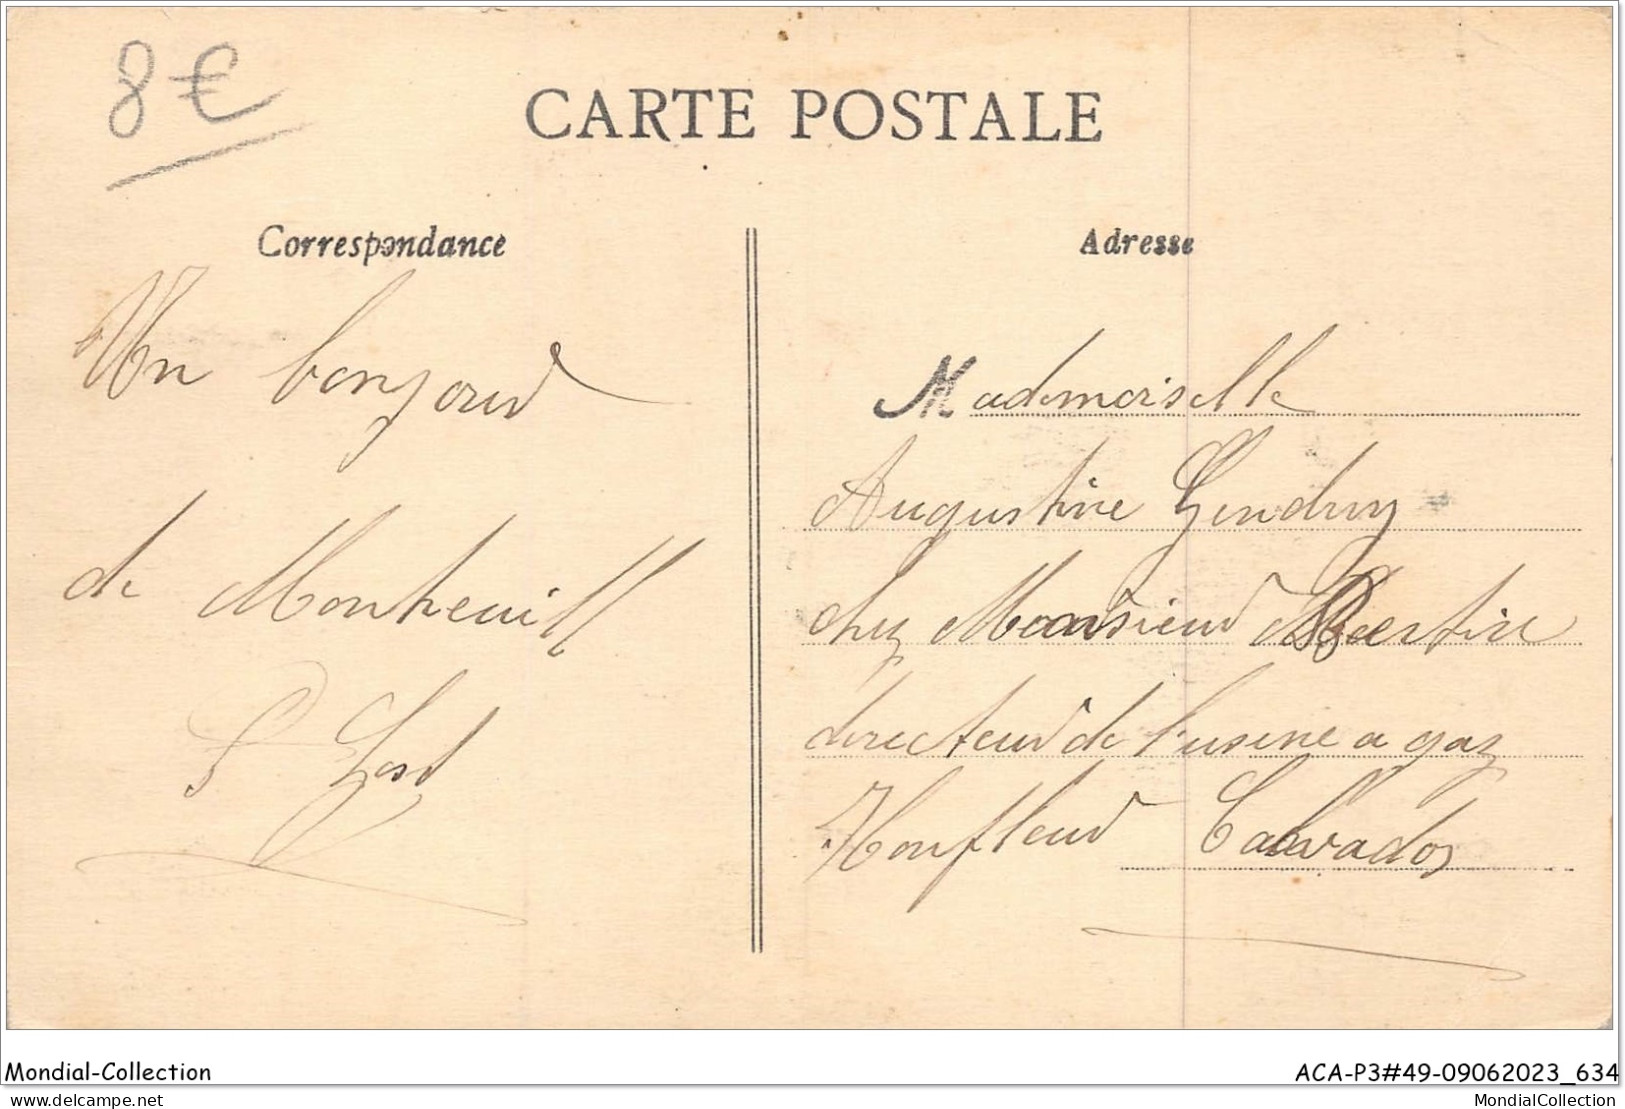 8€
CARTE POSTALE
Correspondance
Adresse
Un bonjour
de Montreuill
Mademoiselle
Augustine Gendry
chez Monsieur Martine
directeur de l'usine a gaz
Honfleur Calvados
Mondial-Collection
ACA-P3#49-09062023_634
delcampe.net
MondialCollection